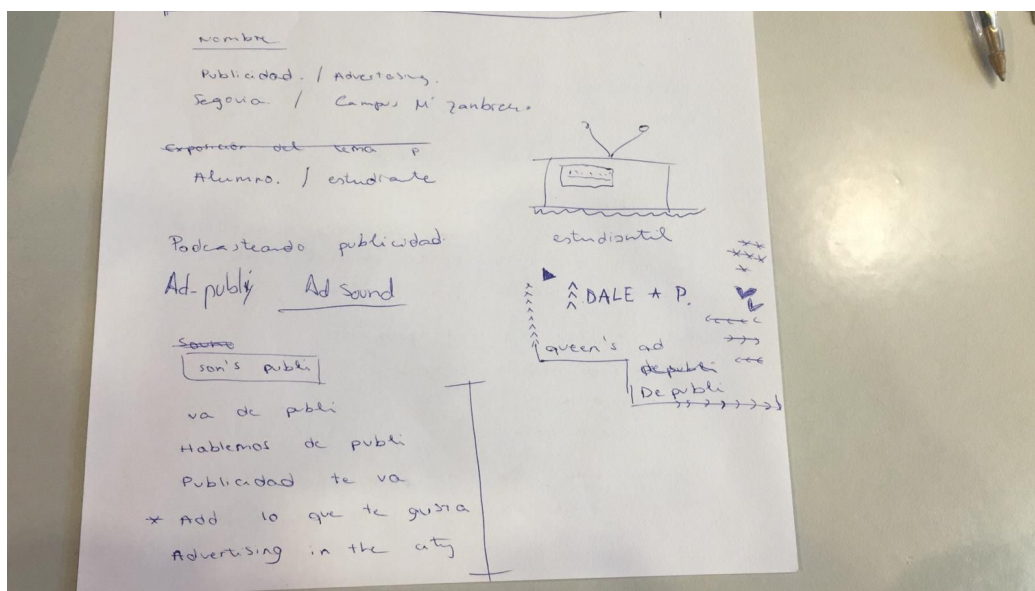 Nombre
Publicidad. / Advertasing.
Segovia / Campus Mª Zambrano.
Exposición del tema P
Alumno. / estudiante
Podcasteando publicidad.
Ad-publi Ad Sound
son's publi
va de publi
Hablemos de publi
Publicidad te va
* Add lo que te gusta
Advertising in the city
estudiantil
DALE A P.
queen's ad
depubli
De publi